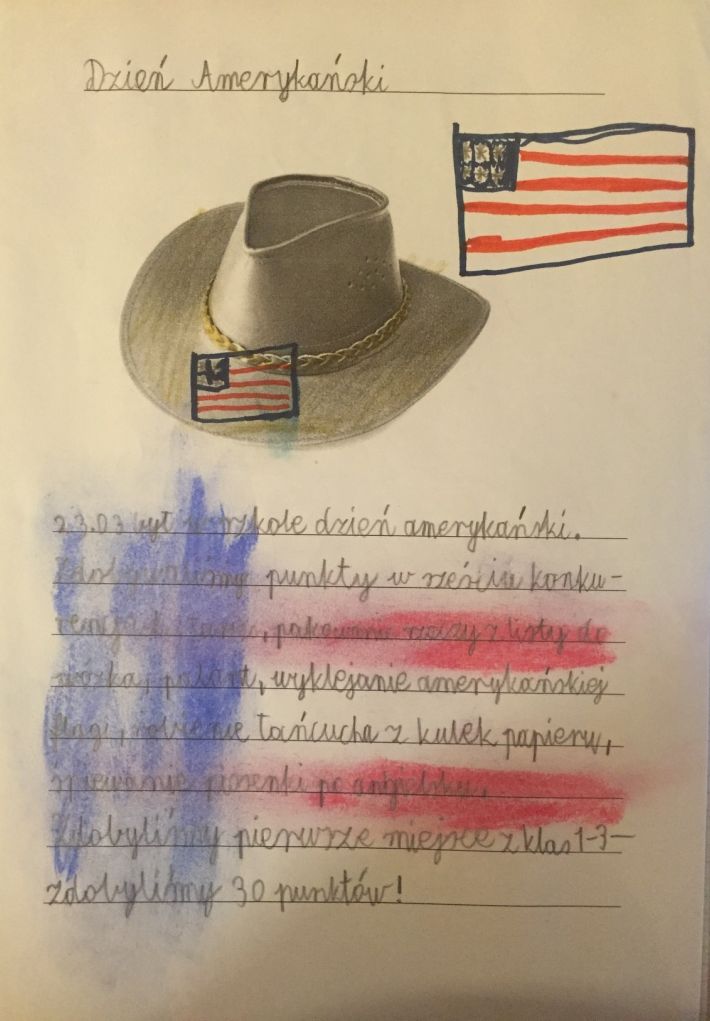 Dzień Amerykański
23.03 był w szkole dzień amerykański.
Zdobywaliśmy punkty w sześciu konku-
rencjach: pakowanie rzeczy z listy do
wórka, palant, wyklejanie amerykańskiej
flagi, robienie łańcucha z kulek papieru,
śpiewanie piosenki po angielsku.
Zdobyliśmy pierwsze miejsce z klas 1-3—
zdobyliśmy 30 punktów!